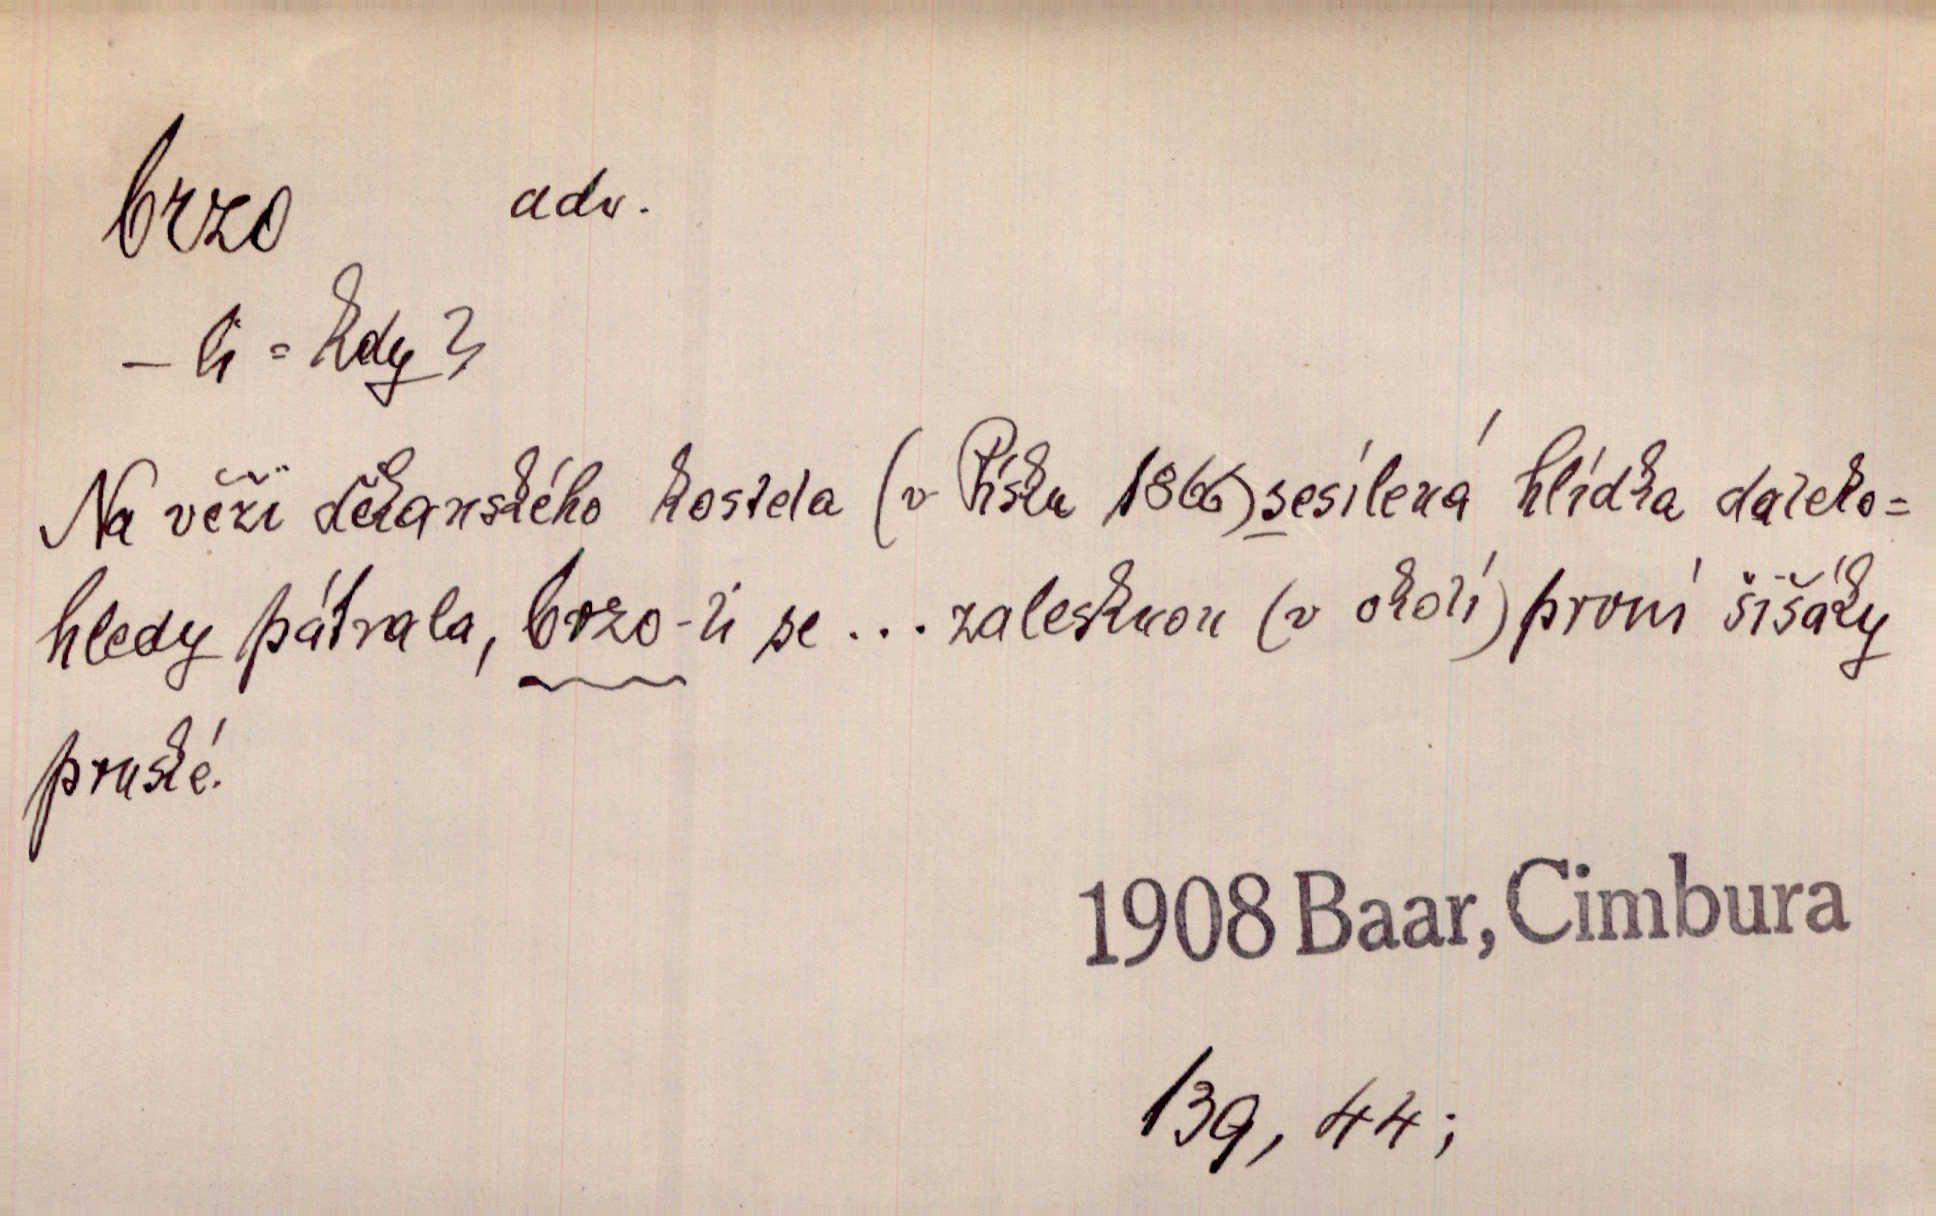 brzo adv.
– li = kdy?
Na věži děkanského kostela (v Písku 1866) sesílená hlídka daleko=
hledy pátrala, brzo-li se ... zalesknou (v okolí) první šišáky
pruské.
1908 Baar, Cimbura
139, 44;